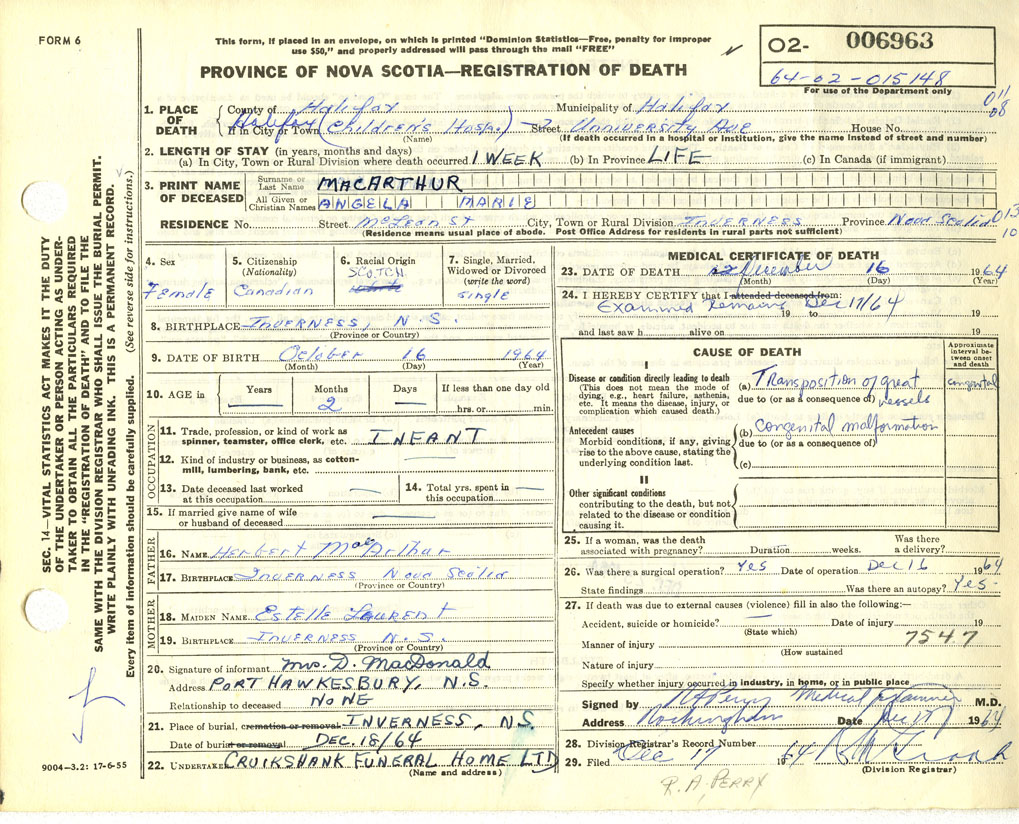 FORM 6
This form, if placed in an envelope, on which is printed "Dominion Statistics—Free, penalty for improper
use $50," and properly addressed will pass through the mail "FREE"
PROVINCE OF NOVA SCOTIA—REGISTRATION OF DEATH
02- 006963
64-02-015148
For use of the Department only
011
08
1. PLACE OF DEATH
County of Halifax Municipality of Halifax
Halifax (Children's Hosp.) Street University Ave House No.
If in City or Town (Name) (If death occurred in a hospital or institution, give the name instead of street and number)
2. LENGTH OF STAY (in years, months and days)
(a) In City, Town or Rural Division where death occurred 1 WEEK (b) In Province LIFE (c) In Canada (if immigrant)
3. PRINT NAME OF DECEASED
Surname or Last Name MACARTHUR
All Given or Christian Names ANGELA MARIE
RESIDENCE No. Street McLean St City, Town or Rural Division INVERNESS Province Nova Scotia
013
10
(Residence means usual place of abode. Post Office Address for residents in rural parts not sufficient)
4. Sex
Female
5. Citizenship
(Nationality)
Canadian
6. Racial Origin
SCOTCH
7. Single, Married,
Widowed or Divorced
(write the word)
Single
8. BIRTHPLACE INVERNESS, N.S.
(Province or Country)
9. DATE OF BIRTH October 16 1964
(Month) (Day) (Year)
10. AGE in
Years
Months
2
Days
If less than one day old
hrs. or min.
OCCUPATION
11. Trade, profession, or kind of work as
spinner, teamster, office clerk, etc. INFANT
12. Kind of industry or business, as cotton-
mill, lumbering, bank, etc.
13. Date deceased last worked
at this occupation
14. Total yrs. spent in
this occupation
15. If married give name of wife
or husband of deceased
FATHER
16. NAME Herbert MacArthur
17. BIRTHPLACE Inverness Nova Scotia
(Province or Country)
MOTHER
18. MAIDEN NAME Estelle Laurent
19. BIRTHPLACE INVERNESS N.S.
(Province or Country)
20. Signature of informant Mrs. D. MacDonald
Address PORT HAWKESBURY, N.S.
Relationship to deceased NONE
21. Place of burial, cremation or removal INVERNESS, N.S
Date of burial or removal DEC. 18/64
22. UNDERTAKER CRUIKSHANK FUNERAL HOME LTD
(Name and address)
MEDICAL CERTIFICATE OF DEATH
23. DATE OF DEATH December 16 1964
(Month) (Day) (Year)
24. I HEREBY CERTIFY that I attended deceased from:
Examined Remains Dec 17/64
19 to 19
and last saw h alive on 19
CAUSE OF DEATH
Approximate interval between onset and death
I
Disease or condition directly leading to death
(This does not mean the mode of
dying, e.g., heart failure, asthenia,
etc. It means the disease, injury, or
complication which caused death.)
(a) Transposition of great
due to (or as a consequence of) vessels
congenital
Antecedent causes
Morbid conditions, if any, giving
rise to the above cause, stating the
underlying condition last.
(b) Congenital malformation
due to (or as a consequence of)
(c)
II
Other significant conditions
contributing to the death, but not
related to the disease or condition
causing it.
25. If a woman, was the death
associated with pregnancy? Duration weeks. Was there a delivery?
26. Was there a surgical operation? Yes Date of operation Dec 16 1964
State findings Was there an autopsy? Yes-
27. If death was due to external causes (violence) fill in also the following:—
Accident, suicide or homicide? Date of injury 19
(State which)
Manner of injury 754.7
(How sustained
Nature of injury
Specify whether injury occurred in industry, in home, or in public place
Signed by R A Perry Medical Examiner M.D.
Address Rockingham Date Dec 17 1964
28. Division Registrar's Record Number
29. Filed Dec 17 1964
(Division Registrar)
R.A. PERRY
SEC. 14—VITAL STATISTICS ACT MAKES IT THE DUTY
OF THE UNDERTAKER OR PERSON ACTING AS UNDER-
TAKER TO OBTAIN ALL THE PARTICULARS REQUIRED
IN THE "REGISTRATION OF DEATH" AND TO FILE THE
SAME WITH THE DIVISION REGISTRAR WHO SHALL ISSUE THE BURIAL PERMIT.
WRITE PLAINLY WITH UNFADING INK. THIS IS A PERMANENT RECORD.
Every item of information should be carefully supplied. (See reverse side for instructions.)
9004-3.2: 17-6-55